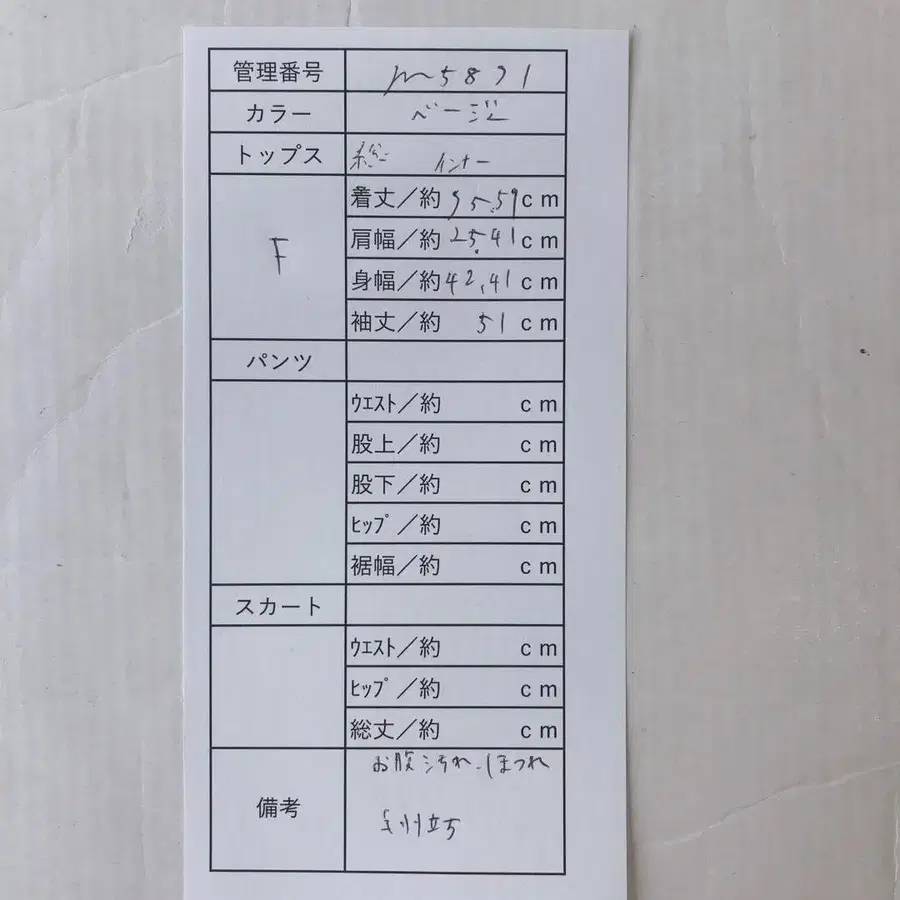 管理番号 m5871
カラー ベージュ
トップス 総 インナー
F
着丈／約 95.59cm
肩幅／約 25.41cm
身幅／約 42.41cm
袖丈／約 51cm
パンツ
ｳｴｽﾄ／約 cm
股上／約 cm
股下／約 cm
ﾋｯﾌﾟ／約 cm
裾幅／約 cm
スカート
ｳｴｽﾄ／約 cm
ﾋｯﾌﾟ／約 cm
総丈／約 cm
備考
お腹汚れ.ほつれ
毛羽立ち